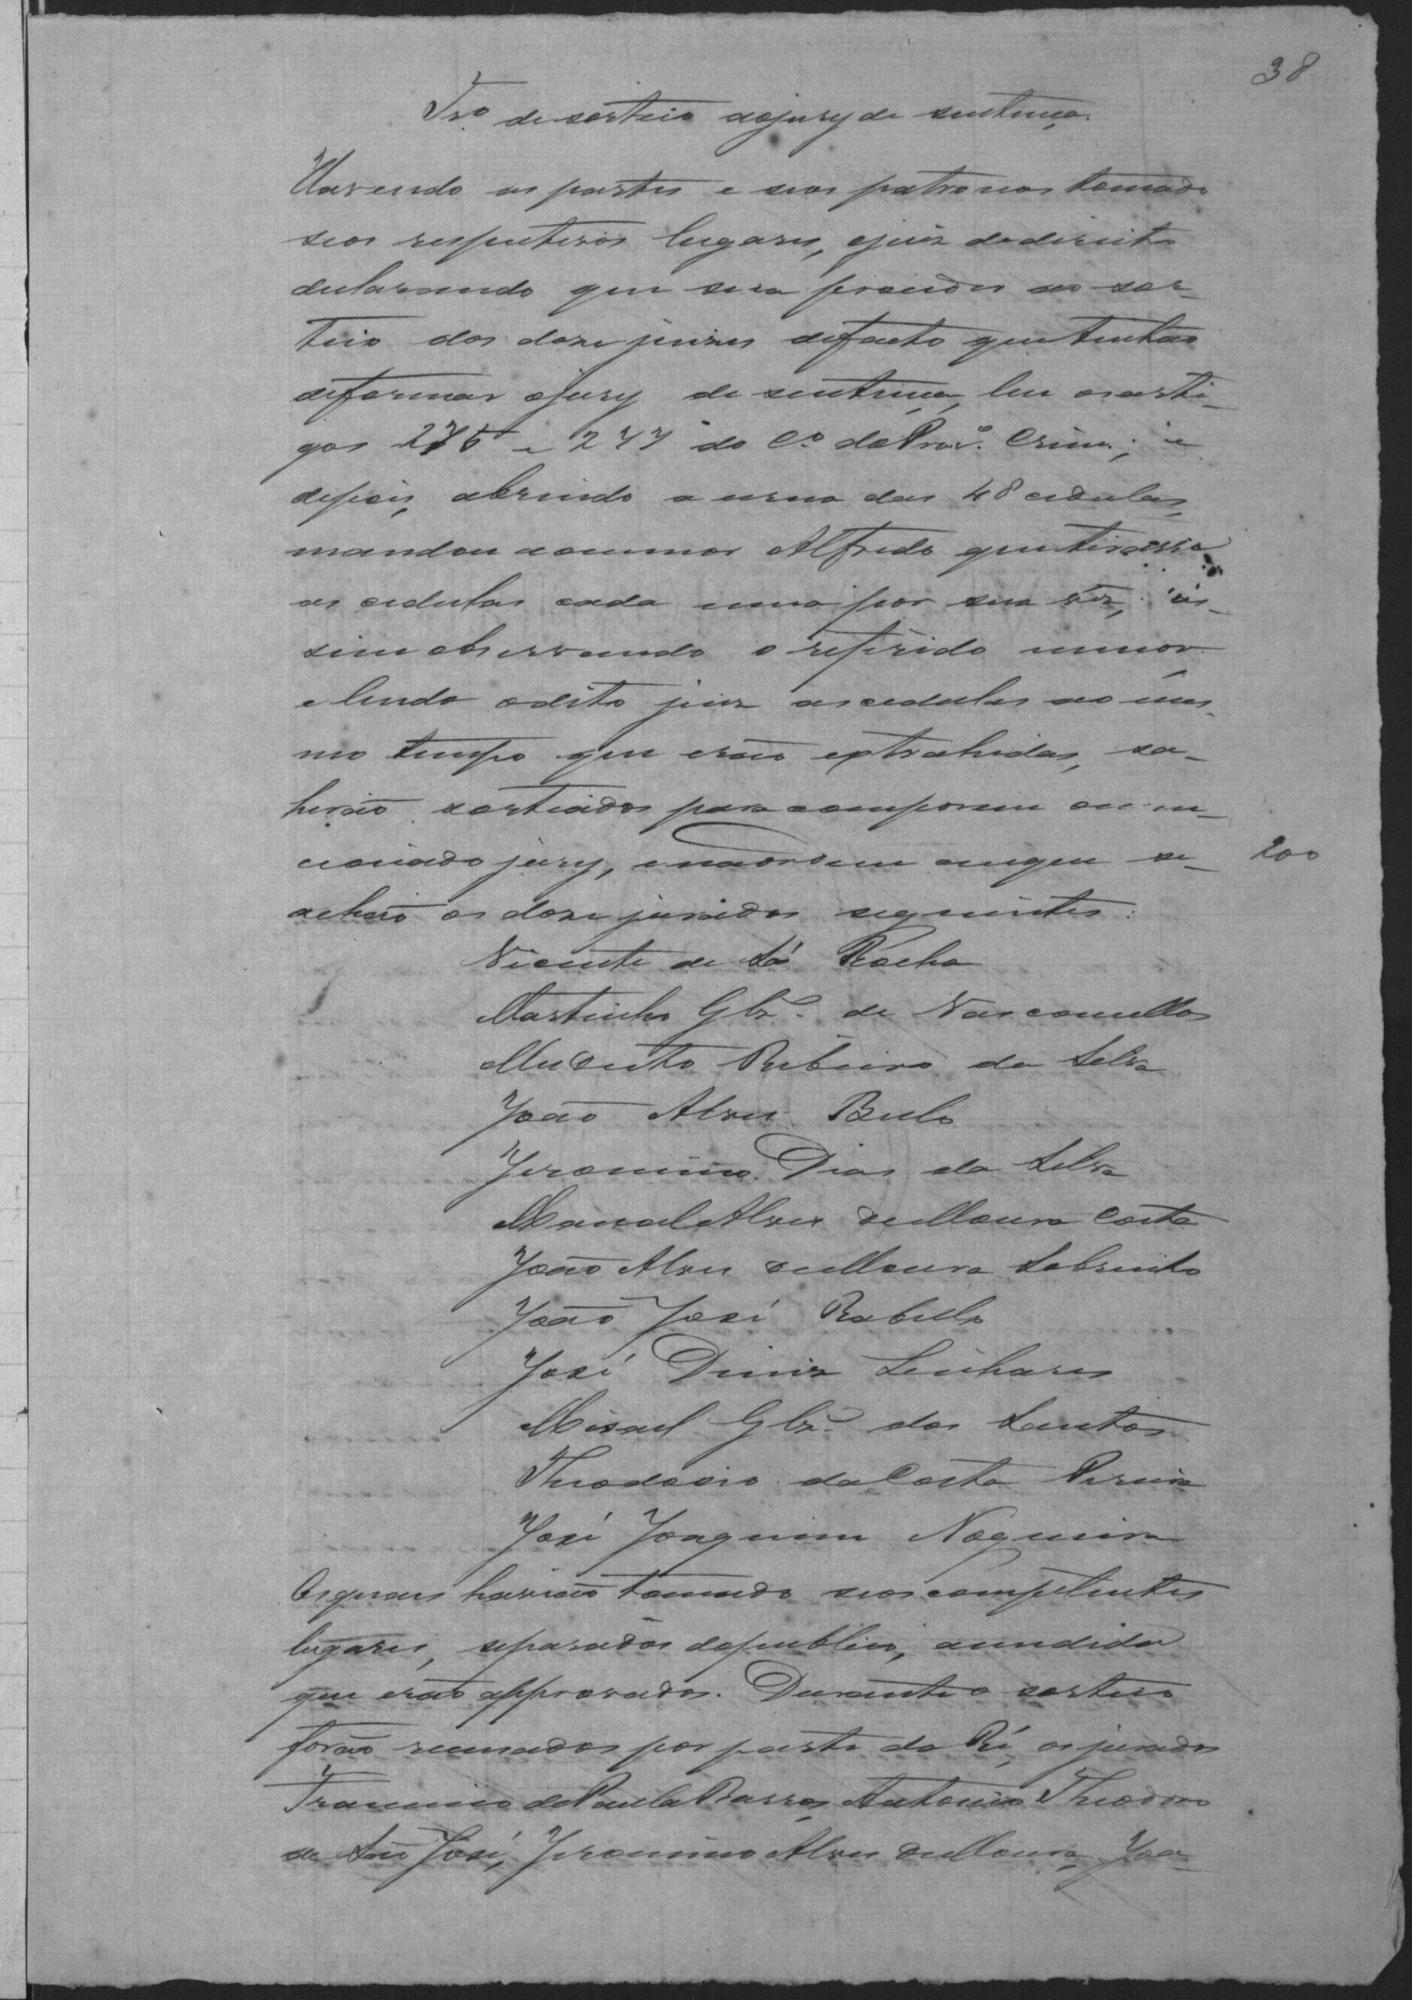 38
Tr.o de sorteio do jury de sentença.
Havendo as partes e seos patronos tomado
seos respectivos lugares, o juiz de direito
declarando que se ia proceder ao sor-
teio dos doze juizes de facto que tinhão
de formar o jury de sentença, leu os arti-
gos 275 e 277 do C.o do Proc.o Crim.; e
depois, abrindo a urna das 48 cedulas,
mandou ao menor Alfredo que tirasse
as cedulas cada uma por sua vez, as-
sim observando o referido menor
e lendo o dito juiz as cedulas ao mes-
mo tempo que erão extrahidas, sa-
hirão sorteados para comporem o men-
cionado jury, e na ordem em que se
200
achão os doze jurados seguintes:
Vicente de Sá Rocha
Martinho Glz. de Vasconcellos
Modesto Ribeiro da Silva
João Alves Bello
Jeronimo Dias da Silva
Manoel Alves de Moura Costa
João Alves de Moura Sobrinho
João José Rabello
José Diniz Linhares
Misael Glz. dos Santos
Theodosio da Costa Pereira
José Joaquim Nogueira
Os quaes havião tomado seos competentes
lugares, separados do publico, a medida
que erão approvados. Durante o sorteio
forão recusados por parte da Ré, os jurados
Francisco de Paula Barros, Antonio Theodoro
de São José, Jeronimo Alves de Moura, Joa-